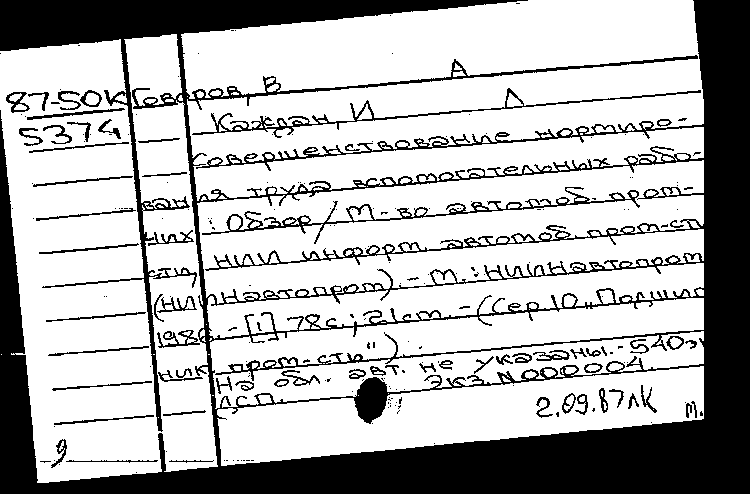 87-50К Говоров, В А
5374 Каждан, И Л
Совершенствование нормиро-
вания труда вспомогательных рабо-
чих : Обзор / М-во автомоб. пром-
сти, НИИ информ. автомоб. пром-сти
(НИИНавтопром). - М. : НИИНавтопром
1986. - [1], 78 с.; 21 см. - (Сер. 10 „Подшип
ник. пром-сть").
На обл. авт. не указаны. - 540 эк
ДСП. Экз. N 000004.
2.09.87 ЛК М.